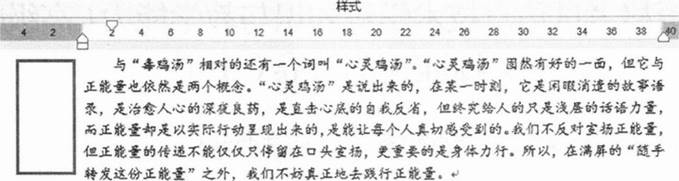 样式
4 2 2 4 6 8 10 12 14 16 18 20 22 24 26 28 30 32 34 36 38 40
与“毒鸡汤”相对的还有一个词叫“心灵鸡汤”。“心灵鸡汤”固然有好的一面，但它与
正能量也依然是两个概念。“心灵鸡汤”是说出来的，在某一时刻，它是闲暇消遣的故事语
录，是治愈人心的深夜良药，是直击心底的自我反省，但终究给人的只是浅层的话语力量，
而正能量却是以实际行动呈现出来的，是能让每个人真切感受到的。我们不反对宣扬正能量，
但正能量的传递不能仅仅只停留在口头宣扬，更重要的是身体力行。所以，在满屏的“随手
转发这份正能量”之外，我们不妨真正地去践行正能量。